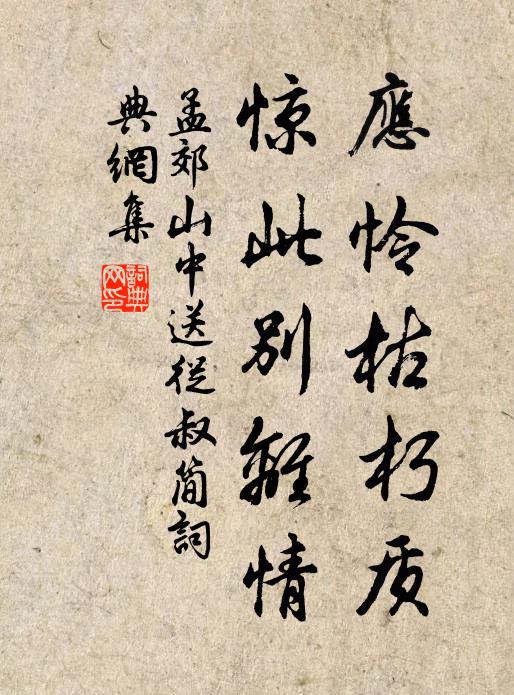 應怜枯朽质
惊此别離情
孟郊山中送從叔简詞
典網集
詞典網印